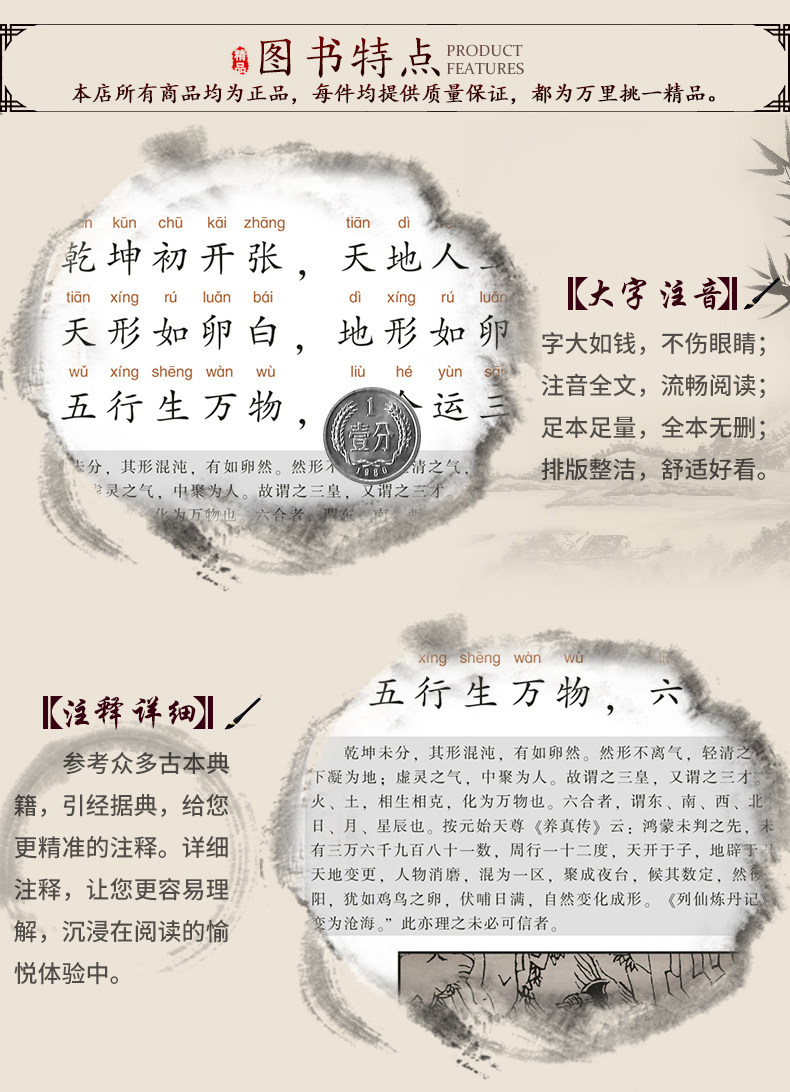 精品
图书特点
PRODUCT
FEATURES
本店所有商品均为正品，每件均提供质量保证，都为万里挑一精品。
kūn chū kāi zhāng tiān dì
乾坤初开张，天地人
tiān xíng rú luǎn bái dì xíng rú luǎn
天形如卵白，地形如卵
wǔ xíng shēng wàn wù liù hé yùn
五行生万物，运三
未分，其形混沌，有如卵然。然形不清之气，
虚灵之气，中聚为人。故谓之三皇，又谓之三才。
化为万物也。六合者，谓东、南、西
1
壹分
1980
【大字 注音】
字大如钱，不伤眼睛；
注音全文，流畅阅读；
足本足量，全本无删；
排版整洁，舒适好看。
xíng shēng wàn wù
五行生万物，六
乾坤未分，其形混沌，有如卵然。然形不离气，轻清之
下凝为地；虚灵之气，中聚为人。故谓之三皇，又谓之三才。
火、土，相生相克，化为万物也。六合者，谓东、南、西、北
日、月、星辰也。按元始天尊《养真传》云：鸿蒙未判之先，未
有三万六千九百八十一数，周行一十二度，天开于子，地辟于
天地变更，人物消磨，混为一区，聚成夜台，候其数定，然後
阳，犹如鸡鸟之卵，伏哺日满，自然变化成形。《列仙炼丹记
变为沧海。”此亦理之未必可信者。
【注释 详细】
参考众多古本典
籍，引经据典，给您
更精准的注释。详细
注释，让您更容易理
解，沉浸在阅读的愉
悦体验中。